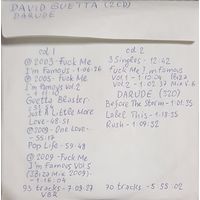 DAVID GUETTA (2CD)
DARUDE
cd 1
② 2003 - Fuck Me
I'm Famous - 1:06:26
② 2005 - Fuck Me
I'm Famous vol. 2
Guetta Blaster
Just A Little More
Love - 48:51
② 2009 - One Love -
Pop Life - 59:48
② 2009 - Fuck Me
I'm Famous
(Ibiza Mix 2009) -
- 1:16:04
93 tracks - 7:09:37
VBR
cd 2
3 Singles - 12:42
Fuck Me I'm Famous
DARUDE (320)
Before The Storm - 1:01:35
Label This - 1:18:35
Rush - 1:09:52
70 tracks - 5:55:02